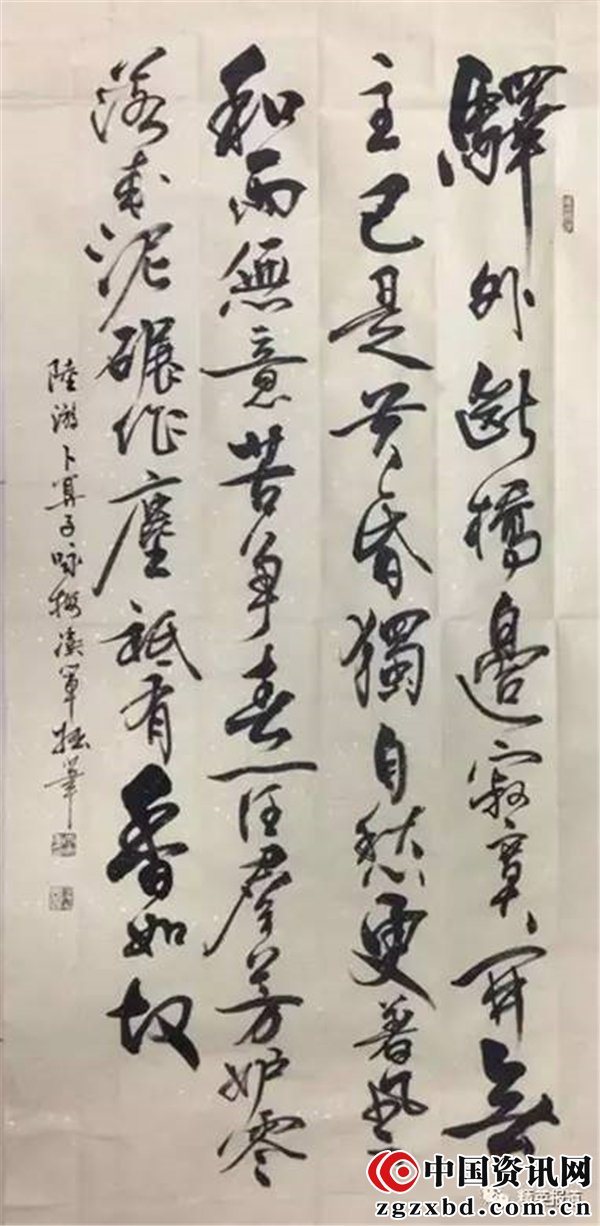 驛外斷橋邊寂寞開無
主已是黃昏獨自愁更著風
和雨無意苦爭春一任羣芳妒零
落成泥碾作塵祇有香如故
陸游卜算子咏梅軍拙筆
中国资讯网
zgzxbd.com.cn
精英报道